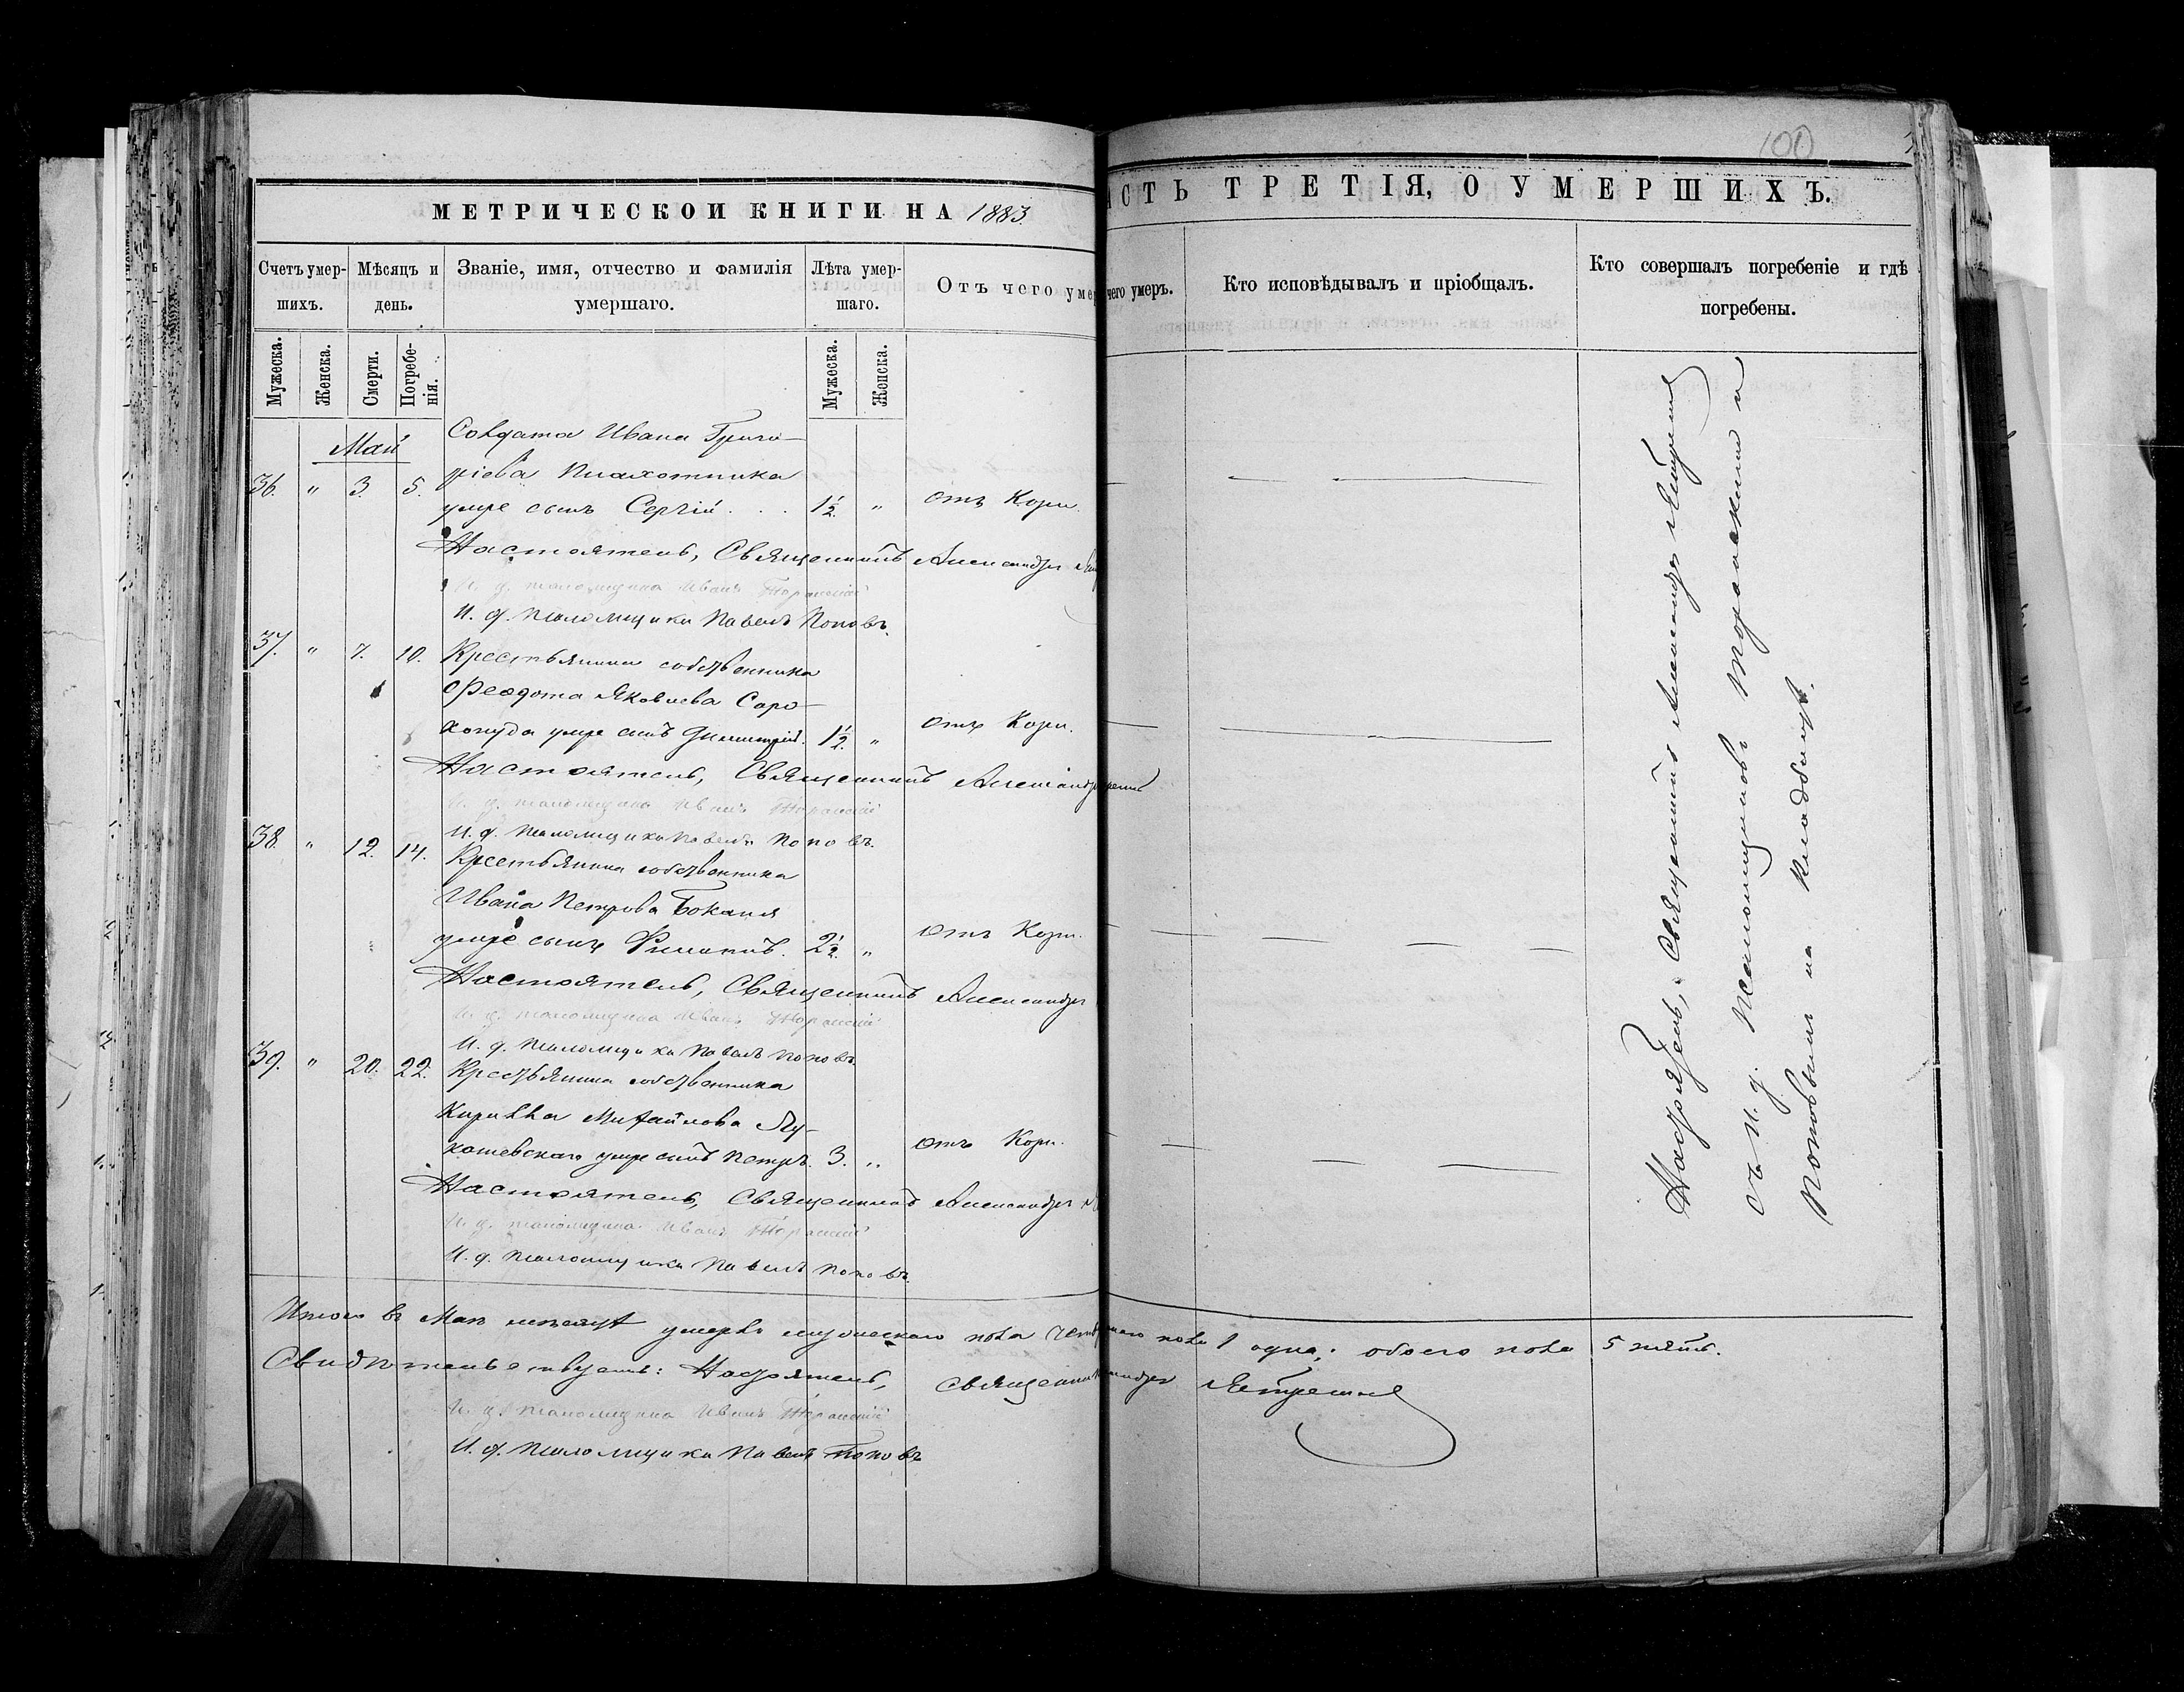 100
МЕТРИЧЕСКОЙ КНИГИ НА 1883
АСТЬ ТРЕТІЯ, О УМЕРШИХЪ.
Счетъ умер-
шихъ.
Мѣсяцъ и
день.
Званіе, имя, отчество и фамилія
умершаго.
Лѣта умер-
шаго.
Отъ чего умер
чего умеръ.
Кто исповѣдывалъ и пріобщалъ.
Кто совершалъ погребеніе и гдѣ
погребены.
Мужеска.
Женска.
Смерти.
Погребе-
нія.
Мужеска.
Женска.
Май
Солдата Ивана Григо-
36. " 3. 5. ріева Плахотника
умре сынъ Сергій . . . 1½. " отъ Кори.
Настоятель, Священникъ Александръ
И. д. псаломщика Иванъ
И. д. псаломщика Павелъ Поповъ.
37. " 7. 10. Крестьянина собственника
Ѳеодота Яковлева Соро-
копуда умре сынъ Димитрій. 1½. " отъ Кори.
Настоятель, Священникъ Александръ
И. д. псаломщика Иванъ
И. д. псаломщика Павелъ Поповъ.
38. " 12. 14. Крестьянина собственника
Ивана Петрова Бокаля
умре сынъ Филиппъ. 2½. " отъ Кори.
Настоятель, Священникъ Александръ
И. д. псаломщика Иванъ
И. д. псаломщика Павелъ Поповъ.
39. " 20. 22. Крестьянина собственника
Кирилла Михайлова
умре сынъ Петръ. 3. " отъ Кори.
Настоятель, Священникъ Александръ
И. д. псаломщика Иванъ
И. д. псаломщика Павелъ Поповъ.
Настоятель, Священникъ Александръ
съ И. д. Псаломщиковъ и
Поповымъ на кладбищѣ.
Итого въ Маѣ мѣсяцѣ умерло мужескаго пола четы наго пола 1 одна; обоего пола 5 пять.
Свидѣтельствуемъ: Настоятель, Священник сандръ
И. д. псаломщика Иванъ
И. д. псаломщика Павелъ Поповъ